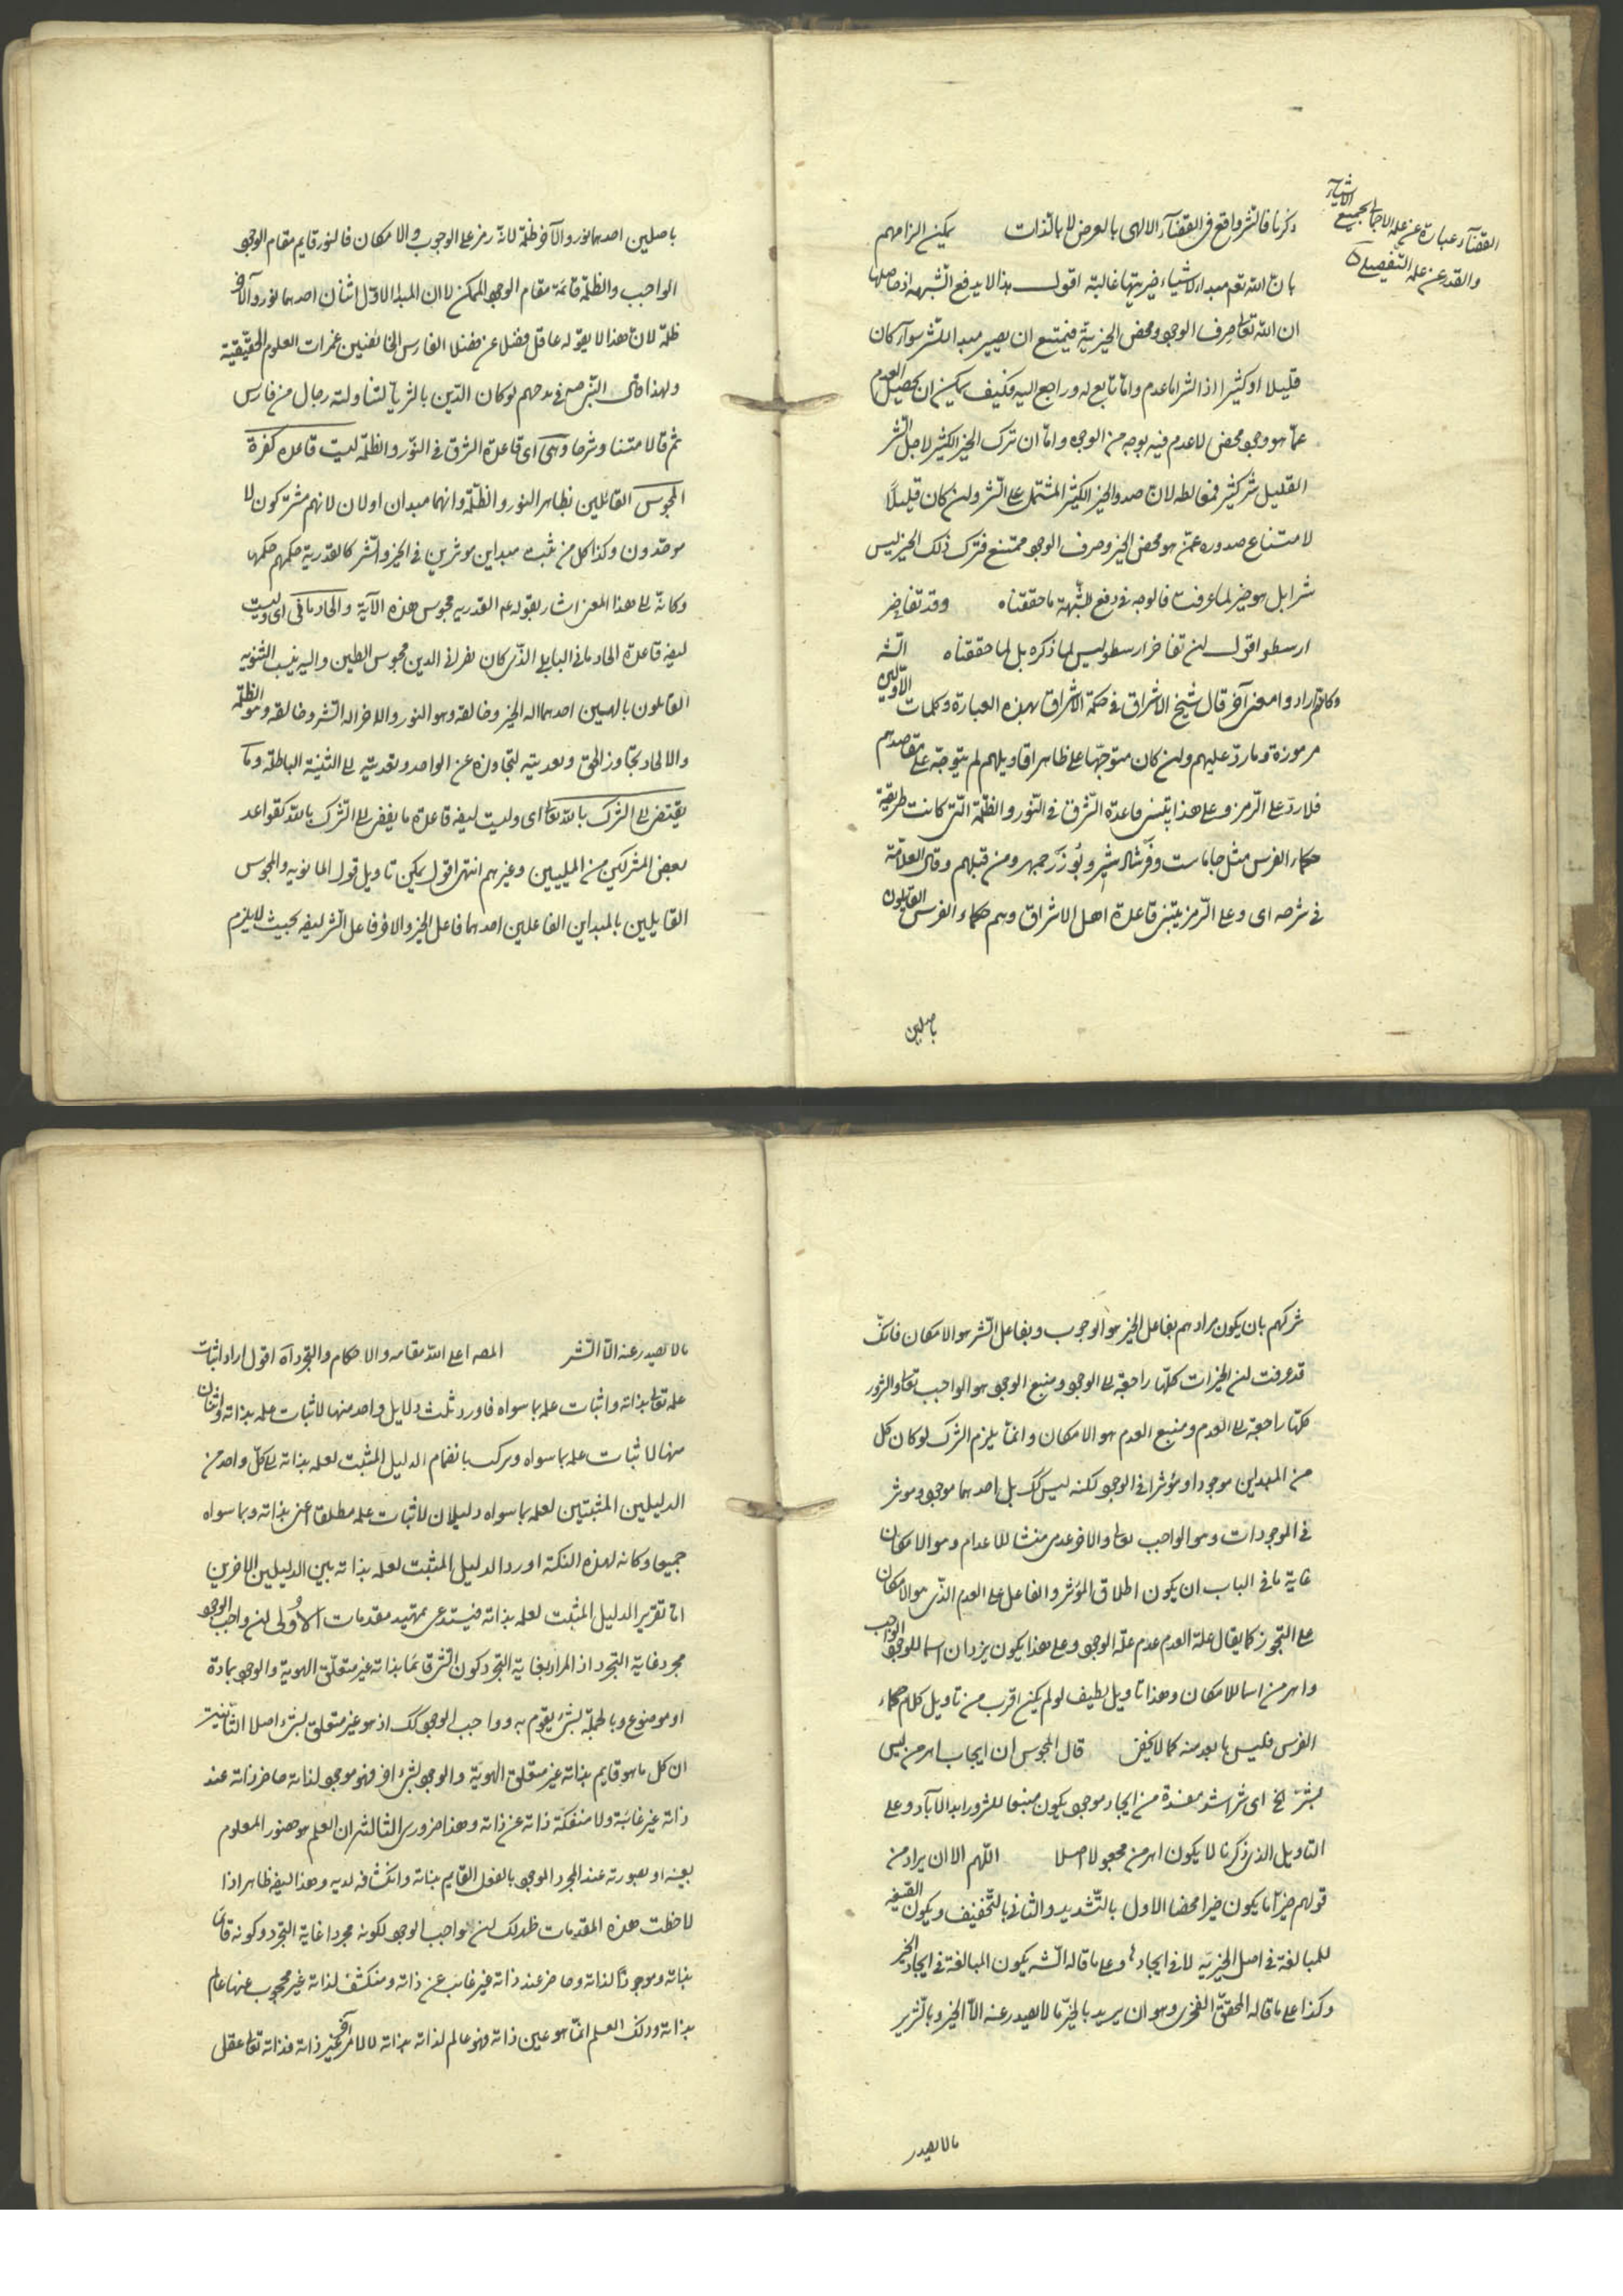 القضآء عبارة عن علمه الاجمالى بجميع الاشيآء
والقدر عن علمه التفصيلى
ذكرنا فالشر واقع فى القضآء الالهى بالعرض لا بالذات يمكن الزامهم
بان الله تعم مبداء لاشياء خيريتها غالبة اقول هذا لا يدفع الشبهه اذ حاصلها
ان الله تعالى صرف الوجود ومحض الخيرية فيمتنع ان يصير مبدا للشر سوآء كان
قليلا او كثيرا اذ الشر اما عدم واما تابع له وراجع اليه فكيف يمكن ان يحصل العدم
عما هو وجود محض لا عدم فيه بوجه من الوجوه واما ان ترك الخير الكثير لاجل الشر
القليل شر كثير فمغالطه لان صدور الخير الكثير المشتمل على الشر ولن كان قليلًا
لامتناع صدوره عمن هو محض الخير وصرف الوجود ممتنع فترك ذلك الخير ليس
شرا بل هو خير لما عرفت فالوجه فى دفع الشبهة ما حققناه وقد تفاخر
ارسطو اقول لن تفاخر ارسطو ليس لما ذكره بل لما حققناه الشه
وكانهم ارادوا معنى آخر قال شيخ الاشراق فى حكمة الاشراق بهذه العبارة وكلمات الاولين
مرموزة وما رد عليهم ولن كان متوجها على ظاهر اقاويلهم لم يتوجه على مقاصدهم
فلا رد على الرمز وعلى هذا يبتنى قاعدة الشرق فى النور والظلمة التى كانت طريقة
حكماء الفرس مثل جاماست وفرشادشير وبوزرجمهر ومن قبلهم وقال العلامة
فى شرحه اى وعلى الرمز يبتنى قاعدة اهل الاشراق وهم حكماء الفرس القايلون
باصلين
باصلين احدهما نور والآخر ظلمة لانه رمز على الوجوب والامكان فالنور قايم مقام الوجود
الواجب والظلمة قائمة مقام الوجود الممكن لا ان المبدا الاول اثنان احدهما نور والآخر
ظلمة لان هذا لا يقوله عاقل فضلا عن فضلا الفارس الخائضين غمرات العلوم الحقيقية
ولهذا قال النبى ص فى مدحهم لو كان الدين بالثريا لتناولته رجال من فارس
ثم قالا متنا وشرحا وهى اى قاعدة الشرق فى النور والظلمة ليست قاعدة كفرة
المجوس القائلين بظاهر النور والظلمة وانهما مبدان اولان لانهم مشركون لا
موحدون وكذا كل من يثبت مبداين موثرين فى الخير والشر كالقدرية حكمهم حكمها
وكانه الى هذا المعنى اشار بقوله عم القدريه مجوس هذه الآية والحاد مانى اى وليست
ايضه قاعدة الحاد مانى البابلى الذى كان نصرانى الدين مجوس الطين واليه ينسب الثنويه
القايلون بالهين احدهما اله الخير وخالقه وهو النور والاخر اله الشر وخالقه وهو الظلمة
والالحاد تجاوز الحق وتعديته لتجاوزه عن الواحد وتعديته الى اثنينة الباطلة وما
يفضى الى الشرك بالله تعالى اى وليست ايضه قاعدة ما يفضى الى الشرك بالله كقواعد
بعض المشركين من المليين وغيرهم انتهى اقول يمكن تاويل قول المانويه والمجوس
القايلين بالمبداين الفاعلين احدهما فاعل الخير والاخر فاعل الشر ايضه بحيث لا يلزم
شركهم بان يكون مرادهم بفاعل الخير هو الوجوب وبفاعل الشر هو الامكان فانك
قد عرفت لن الخيرات كلها راجعة الى الوجود ومنبع الوجود هو الواجب تعالى والشرور
كلها راجعة الى العدم ومنبع العدم هو الامكان وانما يلزم الشرك لو كان كل
من المبداين موجودا ومؤثرا فى الوجود لكنه ليس كك بل احدهما موجود وموثر
فى الموجودات وهو الواجب تعالى والاخر عدمى منشا للاعدام وهو الامكان
غاية ما فى الباب ان يكون اطلاق المؤثر والفاعل على العدم الذى هو الامكان
على التجوز كما يقال علة العدم عدم علة الوجود وعلى هذا يكون يزدان اسما للوجود الواجب
واهرمن اسما للامكان وهذا تاويل لطيف لو لم يكن اقرب من تاويل كلام حكماء
الفرس فليس بابعد منه كما لا يخفى قال المجوس ان ايجاب اهرمن ليس
بشر الخ اى شر اشد مفسدة من ايجاد موجود يكون منبعا للشرور ابد الاباد وعلى
التاويل الذى ذكرنا لا يكون اهرمن مجعولا اصلا اللهم الا ان يراد من
قولهم خيرا ما يكون خيرا محضا الاول بالتشديد والثانى بالتخفيف ويكون الصيغة
للمبالغة فى اصل الخيرية لا فى ايجادها وعلى ما قاله الشه يكون المبالغة فى ايجاد الخير
وكذا على ما قاله المحقق الفخرى وهو ان يريد بالخير ما لا يصدر عنه الا الخير وبالشرير
ما لا يصدر
ما لا يصدر عنه الا الشر المصه اعلى الله مقامه والاحكام والتجرد آه اقول اراد اثبات
علمه تعالى بذاته واثبات علمه بما سواه فاورد ثلث دلايل واحد منها لاثبات علمه بذاته واثنان
منها لاثبات علمه بما سواه ويركب بانضمام الدليل المثبت لعلمه بذاته الى كل واحد من
الدليلين المثبتين لعلمه بما سواه دليلان لاثبات علمه مطلقا اعنى بذاته وبما سواه
جميعا وكانه لهذه النكتة اورد الدليل المثبت لعلمه بذاته بين الدليلين الاخرين
اما تقرير الدليل المثبت لعلمه بذاته فيستدعى تمهيد مقدمات الاولى لن واجب الوجود
مجرد غاية التجرد اذ المراد بغاية التجرد كون الشئ قائما بذاته غير متعلق الهوية والوجود بمادة
او موضوع وبالجملة بشئ يقوم به وواجب الوجود كك اذ هو غير متعلق بشئ اصلا الثانية
ان كل ما هو قايم بذاته غير متعلق الهوية والوجود بشئ اخر فهو موجود لذاته حاضر ذاته عند
ذاته غير غائبة ولا منفكة ذاته عن ذاته وهذا ضرورى الثالثة ان العلم هو حضور المعلوم
بعينه او بصورته عند المجرد الموجود بالفعل القايم بذاته وانكشافه لديه وهذا ايضه ظاهر اذا
لاحظت هذه المقدمات ظهر لك لن واجب الوجود لكونه مجردا غاية التجرد وكونه قائما
بذاته وموجودا لذاته وحاضر عند ذاته غير غائب عن ذاته ومنكشف لذاته غير محجوب عنها عالم
بذاته وذلك العلم انما هو عين ذاته فهو عالم لذاته بذاته لا لامر آخر غير ذاته فذاته تعالى عقل